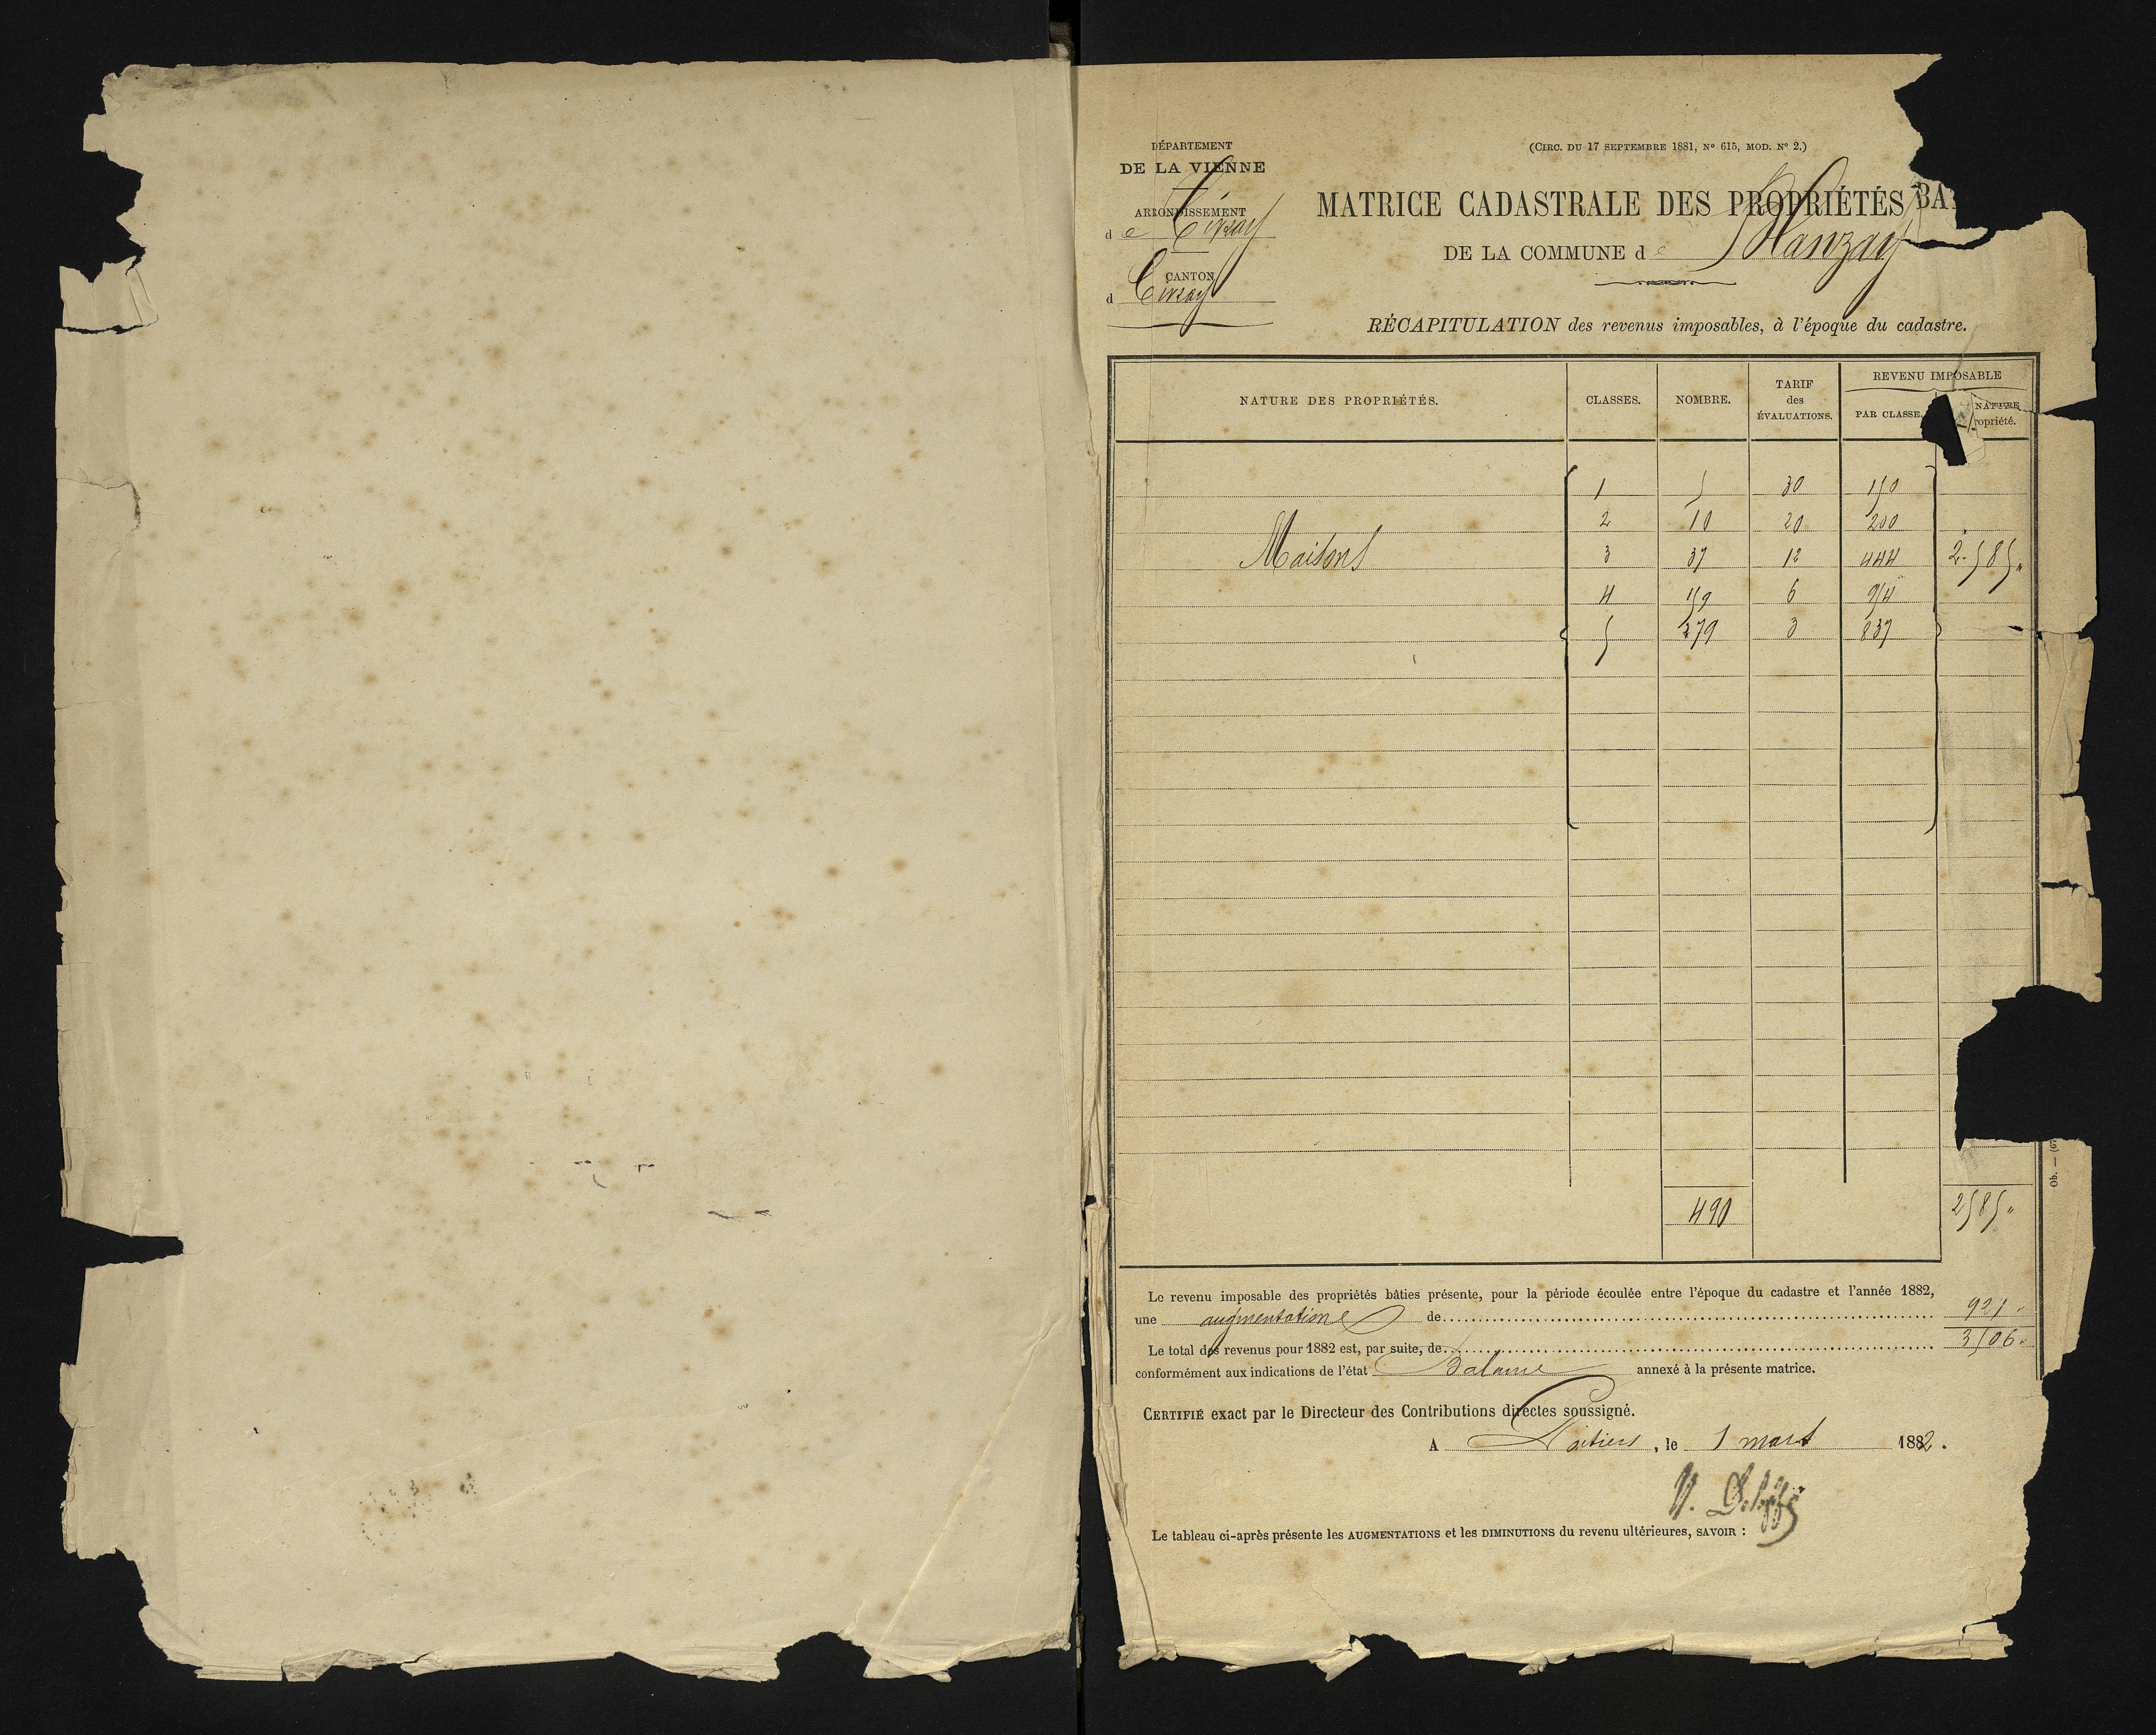 DÉPARTEMENT
DE LA VIENNE
ARRONDISSEMENT
de Civray
CANTON
d Civray
(CIRC. DU 17 SEPTEMBRE 1881, Nº 615, MOD. Nº 2.)
MATRICE CADASTRALE DES PROPRIÉTÉS BA
DE LA COMMUNE de Blanzay
RÉCAPITULATION des revenus imposables, à l'époque du cadastre.
NATURE DES PROPRIÉTÉS. CLASSES. NOMBRE. TARIF des ÉVALUATIONS. REVENU IMPOSABLE
PAR CLASSE. NATURE
ropriété.
1 5 30 150
2 10 20 200
Maisons 3 37 12 444 2.585 "
4 159 6 954
5 279 3 837
490 2585 "
Le revenu imposable des propriétés bâties présente, pour la période écoulée entre l'époque du cadastre et l'année 1882,
une augmentation de 921 "
Le total des revenus pour 1882 est, par suite, de 3506 "
conformément aux indications de l'état Balance annexé à la présente matrice.
CERTIFIÉ exact par le Directeur des Contributions directes soussigné.
A Poitiers, le 1 mars 1882.
Le tableau ci-après présente les AUGMENTATIONS et les DIMINUTIONS du revenu ultérieures, SAVOIR :
Ob. — (67